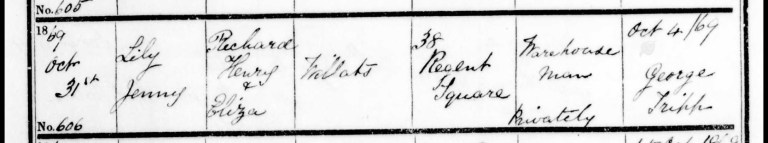 No. 605
1869
Oct
31st
No. 606
Lily
Jenny
Richard
Henry
&
Eliza
Willats
38
Regent
Square
Warehouse
Man
Privately
Oct 4/69
George
Tripp